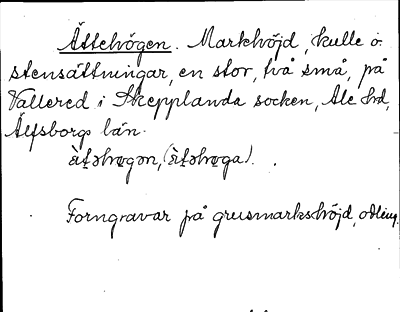 Ättehögen. Markhöjd, kulle o.
stensättningar, en stor, två små, på
Vallered i Skepplanda socken, Ale hd,
Älfsborgs län.
Forngravar på grusmarkshöjd, odling.